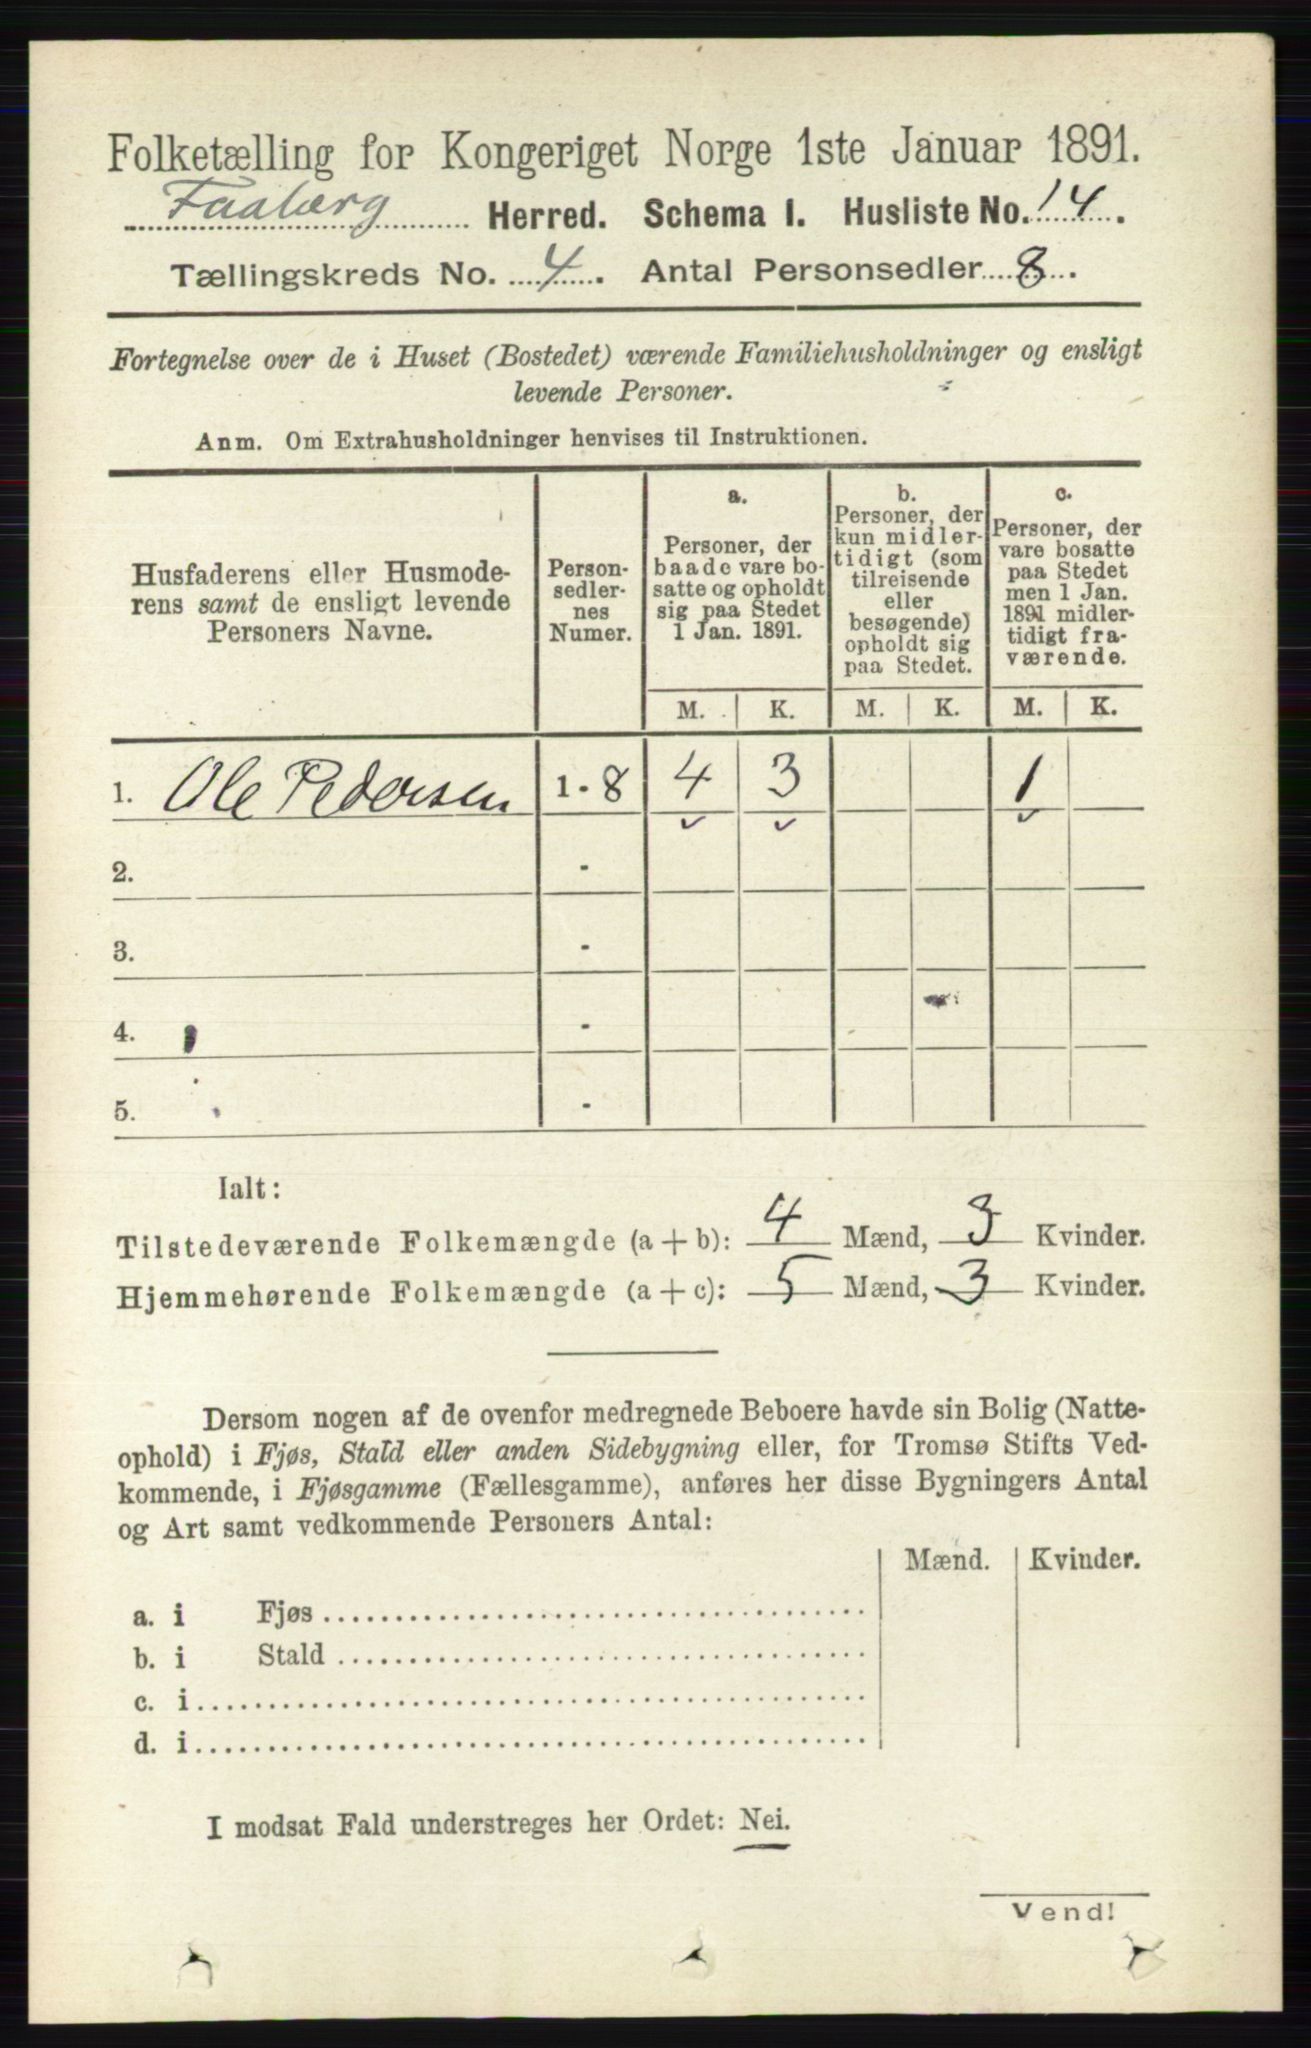 Folketælling for Kongeriget Norge 1ste Januar 1891.
Faaberg Herred. Schema I. Husliste No. 14.
Tællingskreds No. 4. Antal Personsedler 8.
Fortegnelse over de i Huset (Bostedet) værende Familiehusholdninger og ensligt
levende Personer.
Anm. Om Extrahusholdninger henvises til Instruktionen.
Husfaderens eller Husmode-
rens samt de ensligt levende
Personers Navne.
Person-
sedler-
nes
Numer.
a.
Personer, der
baade vare bo-
satte og opholdt
sig paa Stedet
1 Jan. 1891.
b.
Personer, der
kun midler-
tidigt (som
tilreisende
eller
besøgende)
opholdt sig
paa Stedet.
c.
Personer, der
vare bosatte
paa Stedet
men 1 Jan.
1891 midler-
tidigt fra-
værende.
M. K. M. K. M. K.
1. Ole Pedersen 1-8 4 3 1
2. -
3. -
4. -
5. -
Ialt:
Tilstedeværende Folkemængde (a + b): 4 Mænd, 3 Kvinder.
Hjemmehørende Folkemængde (a + c): 5 Mænd, 3 Kvinder.
Dersom nogen af de ovenfor medregnede Beboere havde sin Bolig (Natte-
ophold) i Fjøs, Stald eller anden Sidebygning eller, for Tromsø Stifts Ved-
kommende, i Fjøsgamme (Fællesgamme), anføres her disse Bygningers Antal
og Art samt vedkommende Personers Antal:
Mænd. Kvinder.
a. i Fjøs
b. i Stald
c. i
d. i
I modsat Fald understreges her Ordet: Nei.
Vend!